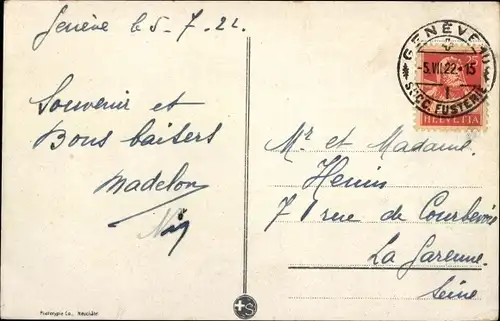 Genève le 5-7-22.
Souvenir et
Bons baisers
Madelon
GENÈVE 10
-5.VII.22-15
1
SUCC. FUSTERIE
HELVETIA
Mr et Madame.
Henin
7 rue de Courbevoie
La Garenne.
Seine
Phototypie Co., Neuchâtel
S